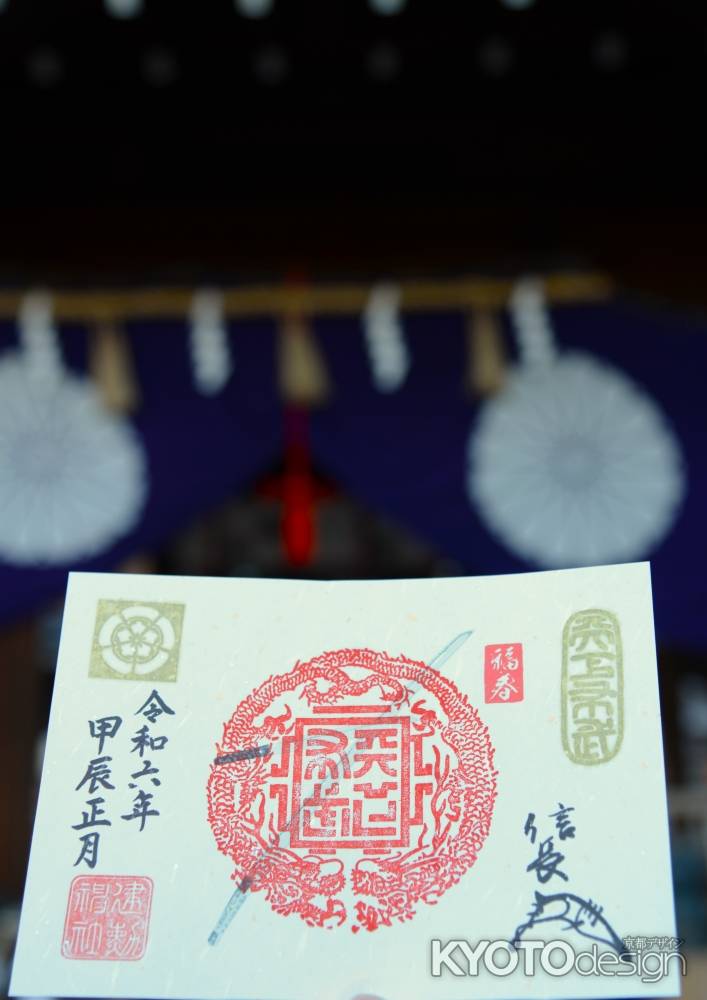 天下布武
福春
信長
天下布武
令和六年
甲辰正月
建勲神社
京都デザイン
KYOTOdesign